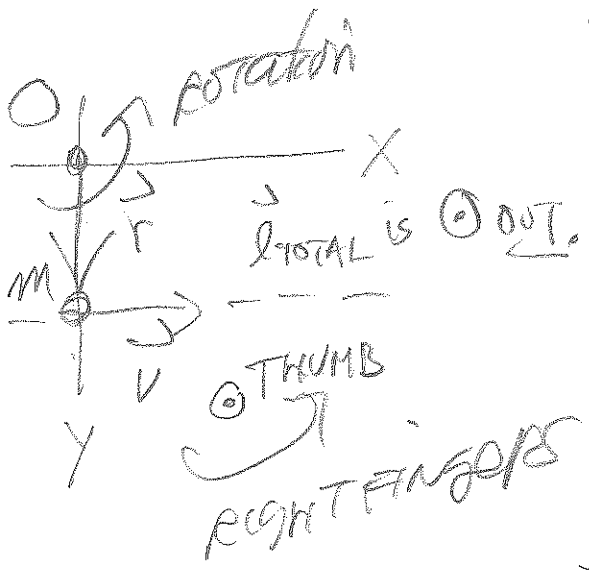 O
ROTATION
X
r
l TOTAL is ⊙ OUT.
m
v
⊙ THUMB
Y
RIGHT FINGERS